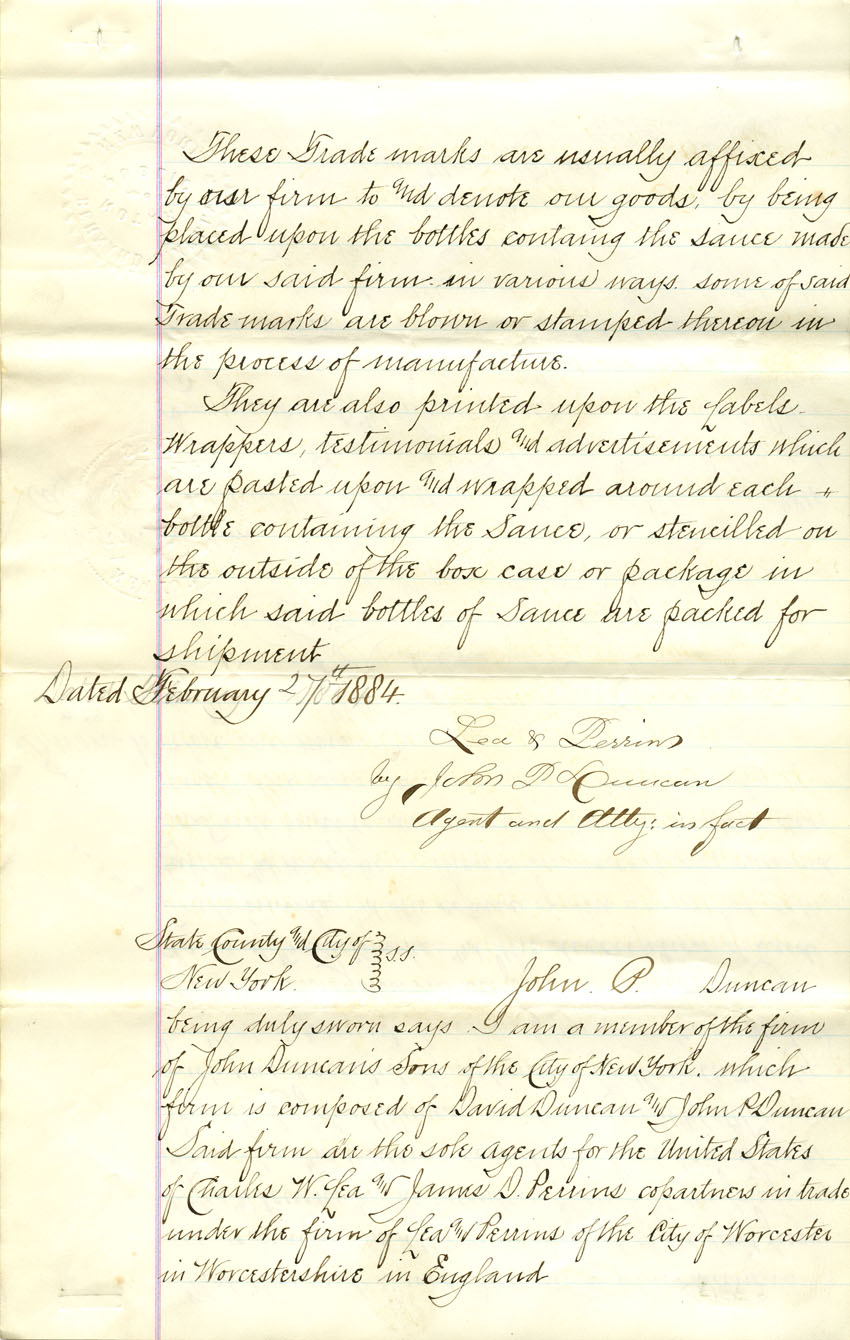 These Trade marks are usually affixed
by our firm to and denote our goods, by being
placed upon the bottles containg the sauce made
by our said firm in various ways. some of said
Trade marks are blown or stamped thereon in
the process of manufacture.
They are also printed upon the Labels
Wrappers, testimonials and advertisements which
are pasted upon and wrapped around each "
bottle containing the Sauce, or stencilled on
the outside of the box case or package in
which said bottles of Sauce are packed for
shipment
Dated February 27th 1884.
Lea & Perrins
by John P Duncan
Agent and Atty: in fact
State County and City of } s.s.
New York.
John. P. Duncan
being duly sworn says. I am a member of the firm
of John Duncan's Sons of the City of New York. which
firm is composed of David Duncan and John P Duncan
Said firm are the sole agents for the United States
of Charles W. Lea and James D. Perrins copartners in trade
under the firm of Lea and Perrins of the City of Worcester
in Worcestershire in England